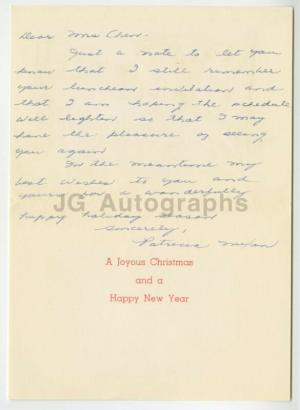 Dear Mrs Chew -
Just a note to let you
know that I still remember
your luncheon invitation and
that I am hoping the schedule
will lighten so that I may
have the pleasure of seeing
you again.
In the meantime my
best wishes to you and
yours for a wonderfully
JG Autographs
happy holiday season
Sincerely,
Patricia Nixon
A Joyous Christmas
and a
Happy New Year